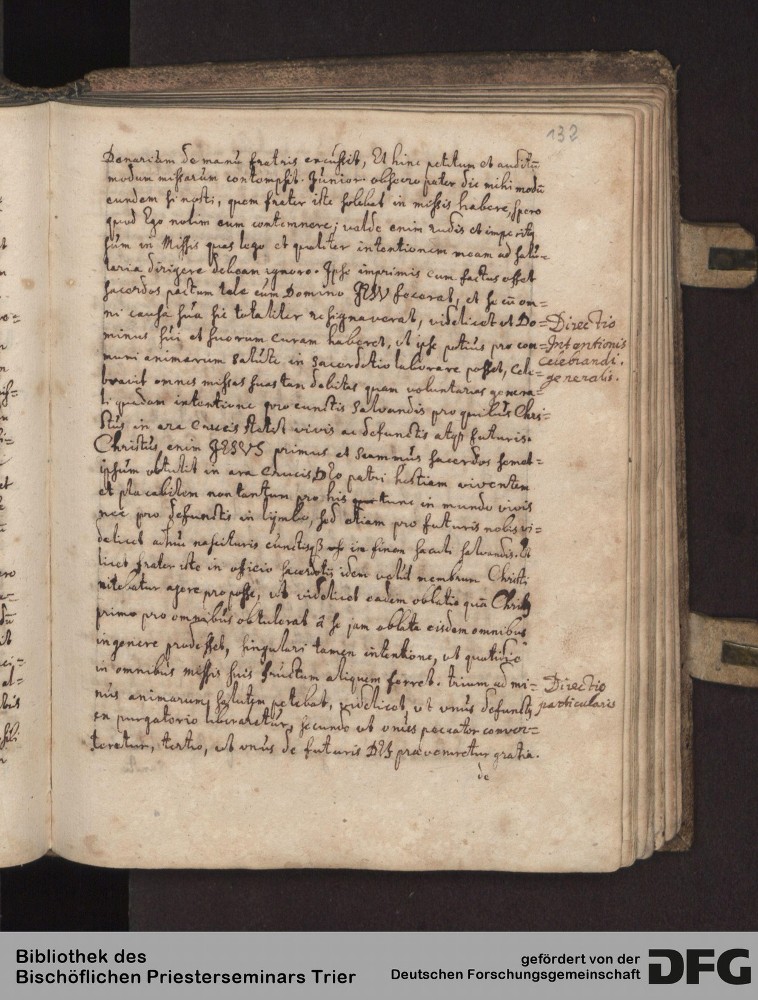 132
Denarium de manu fratris excussit, Et hinc petitum et auditū
modum missarum contempsit. Junior. obsecro pater dic mihi modū
eundem si nosti, quem frater iste solebat in missis habere, spero
quod Ego nolim eum contemnere; valde enim rudis et imperitus
sum in Missis quas lego et qualiter intentionem meam ad salu-
taria dirigere debeam ignoro. Ipse imprimis cum factus esset
sacerdos pactum tale cum Domino JESU fecerat, et se cū om-
ni causa sua sic totaliter resignaverat, videlicet ut Do-
minus sui et suorum curam haberet, et ipse potius pro com-
muni animarum salute in sacerdotio laborare posset, Cele-
bravit omnes missas suas tam debitas quam voluntarias genera-
li quadam intentione pro cunctis salvandis pro quibus Chri-
stus in ara crucis stetit vivis ac defunctis atque futuris.
Christus enim JESUS primus et summus sacerdos semet-
ipsum obtulit in ara crucis Deo patri hostiam viventem
et placabilem non tantum pro his tunc in mundo vivis
nec pro defunctis in lymbo, sed etiam pro futuris nobis vi-
delicet adhuc nascituris cunctisque in finem saeculi salvandis. Et
licet frater iste in officio sacerdotis idem velut membrum Christi
nitebatur agere pro posse, ut videlicet eadem oblatio quā Christus
primo pro omnibus obtulerat à se jam oblata eisdem omnibus
in genere prodesset, singulari tamen intentione, ut quotidie
in omnibus missis suis fructum aliquem ferret. trium ad mi-
nus animarum salutem petebat, videlicet, ut unus defunctus
in purgatorio liberaretur, secundo ut unus peccator conver-
teretur, tertio, ut unus de futuris DEI praeveniretur gratia.
de
Directio
Intentionis
celebrandi
generalis.
Directio
particularis
Bibliothek des
Bischöflichen Priesterseminars Trier
gefördert von der
Deutschen Forschungsgemeinschaft
DFG